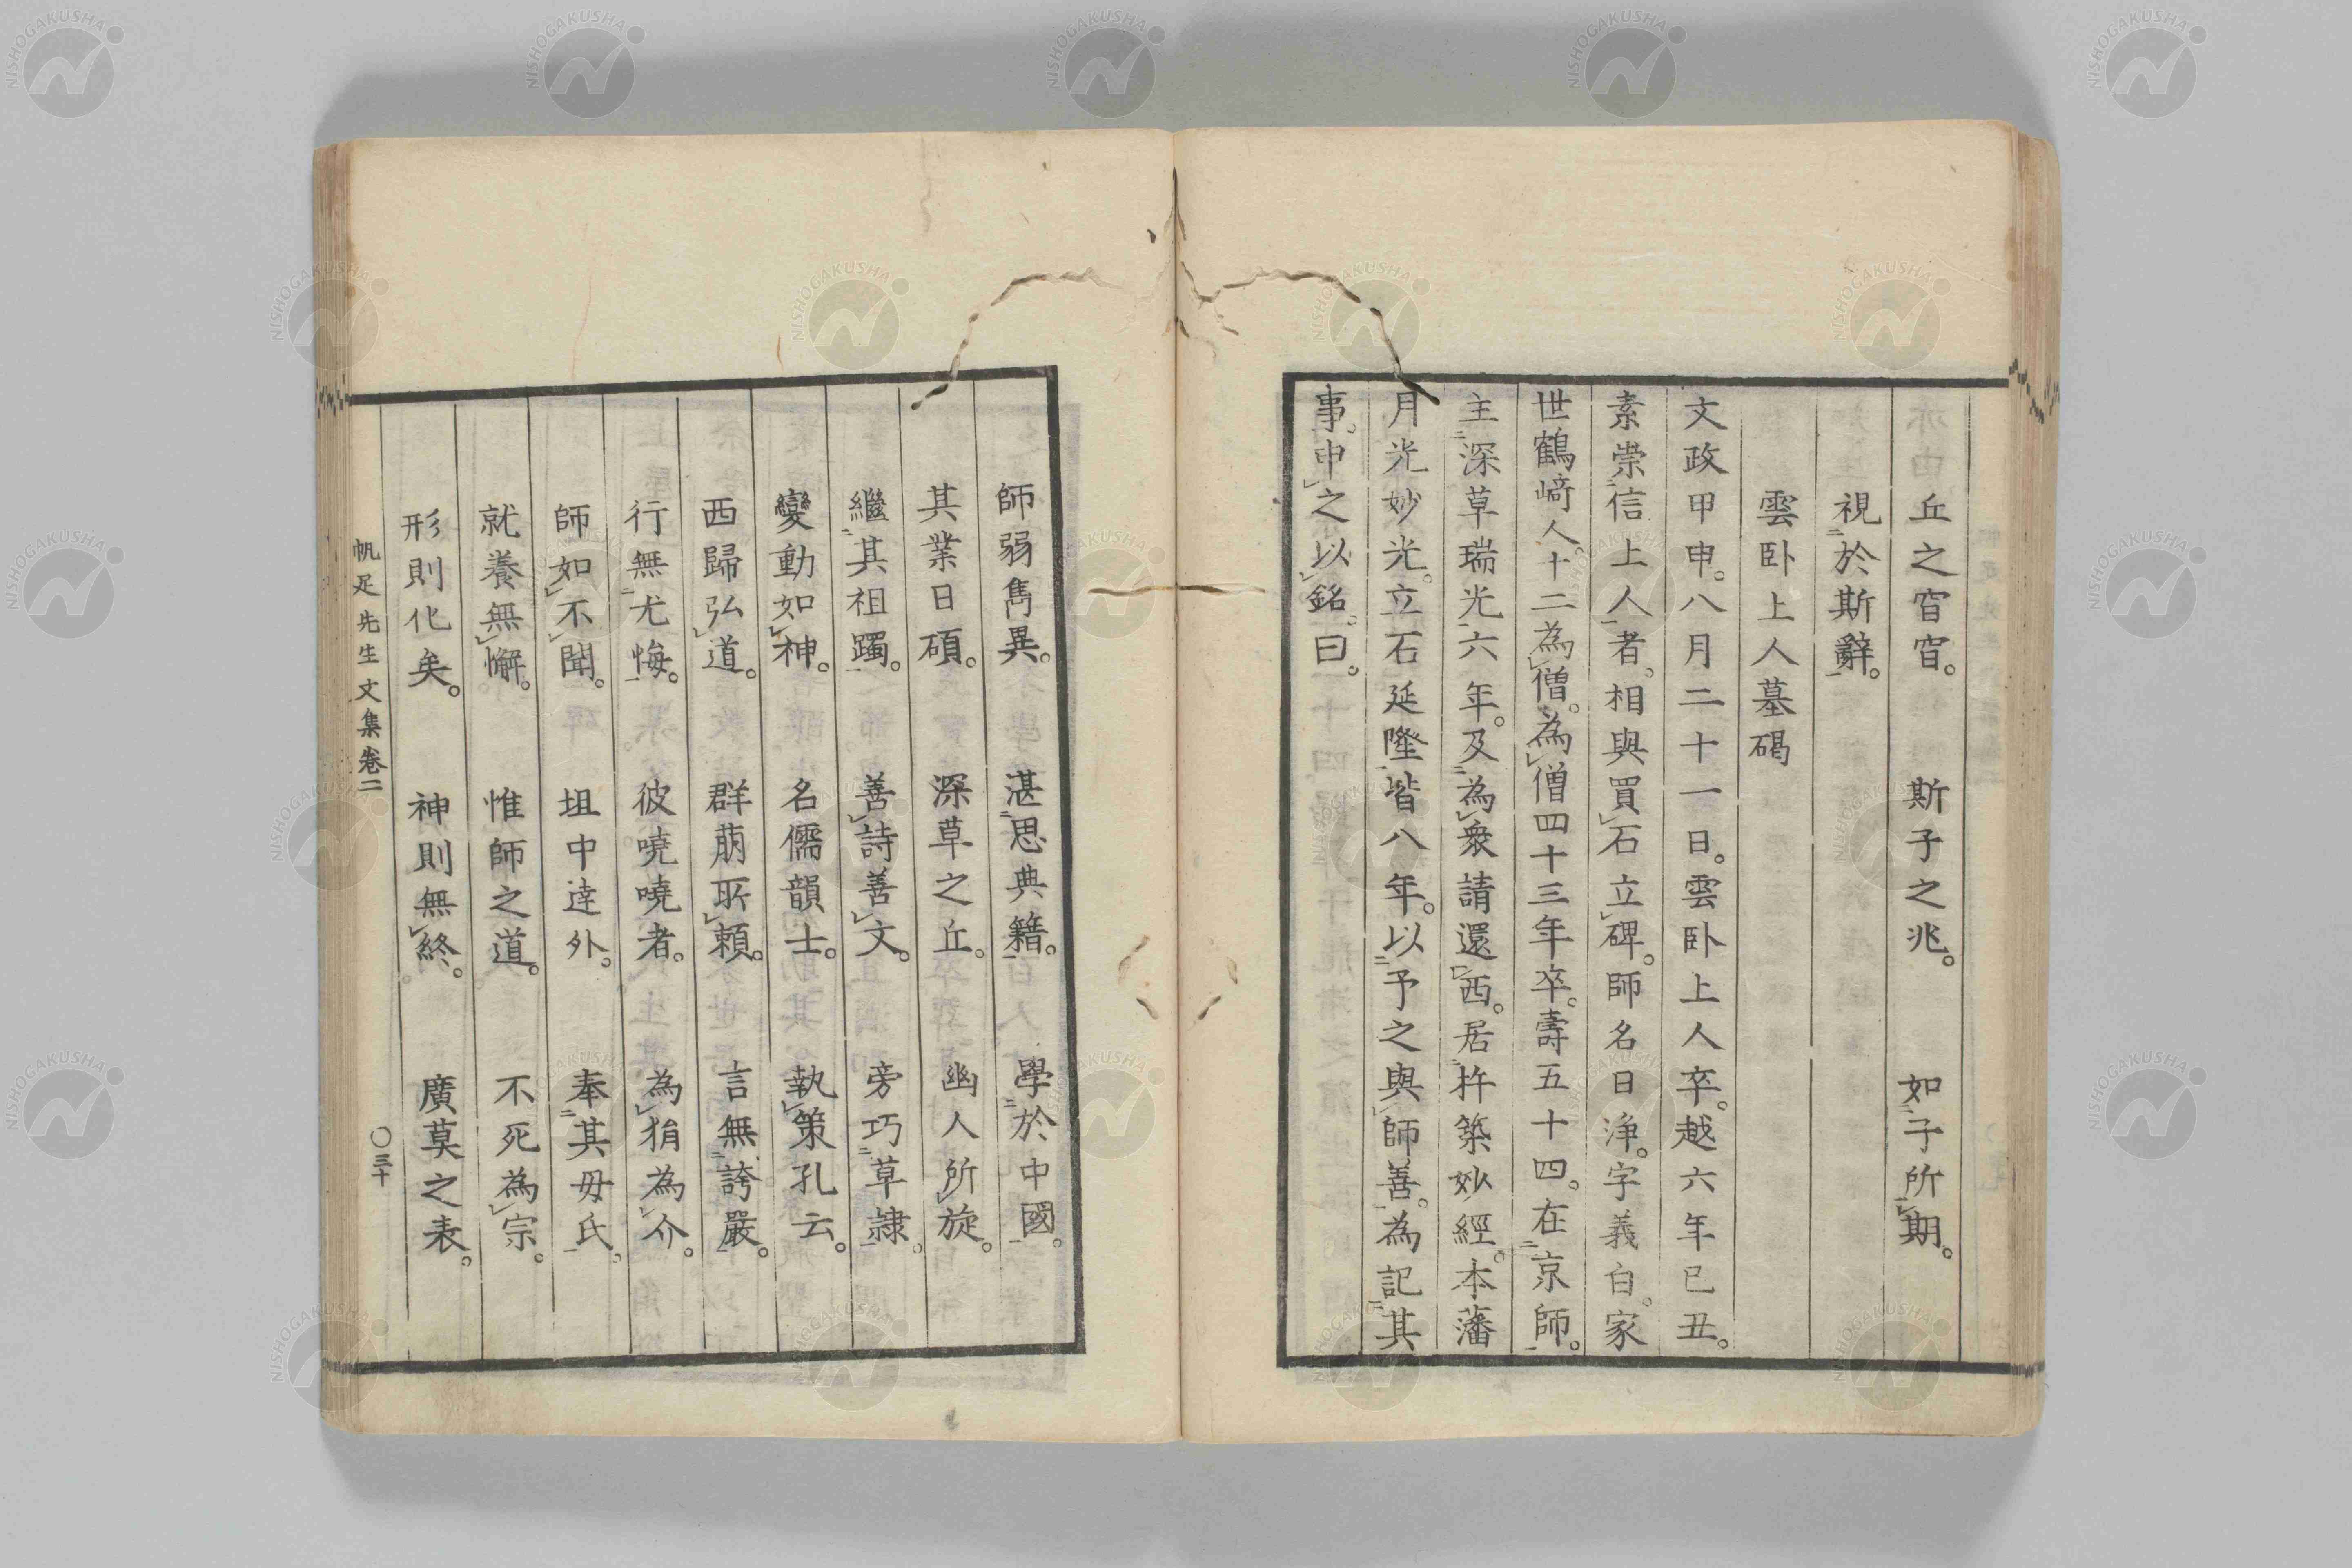 丘之窅窅。斯子之兆。如子所期。
視於斯辭。
雲卧上人墓碣
文政甲申。八月二十一日。雲卧上人卒。越六年已丑。
素崇信上人者。相與買石立碑。師名日淨。字義白。家
世鶴﨑人。十二為僧。為僧四十三年卒。壽五十四。在京師。
主深草瑞光六年。及為衆請還西。居杵築妙經。本藩
月光妙光。立石延隆皆八年。以予之與師善。為記其
事。申之以銘。曰。
師弱雋異。湛思典籍。學於中國。
其業日碩。深草之丘。幽人所旋。
繼其祖躅。善詩善文。旁巧草隷。
變動如神。名儒韻士。執策孔云。
西歸弘道。群萠所頼。言無誇嚴。
行無尤悔。彼嘵嘵者。為狷為介。
師如不聞。坦中達外。奉其毋氏。
就養無懈。惟師之道。不死為宗。
形則化矣。神則無終。廣莫之表。
帆足先生文集卷二 〇三十
NISHOGAKUSHA